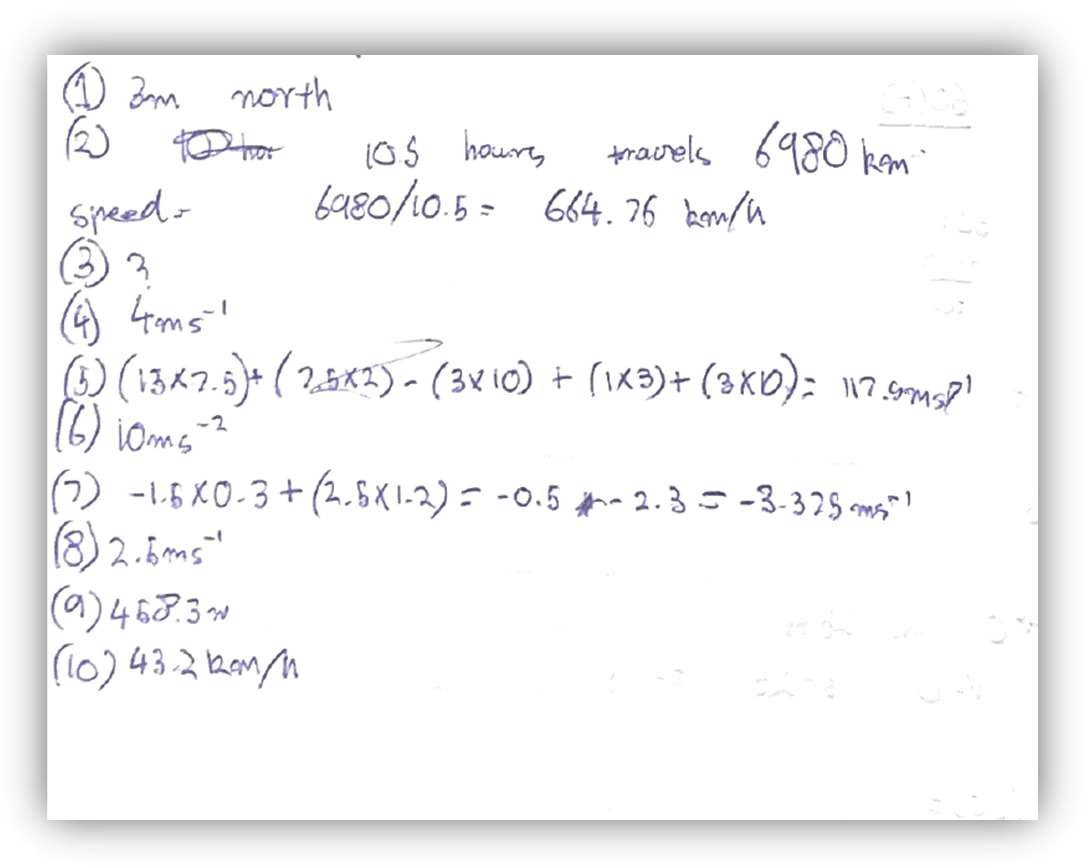 (1) 3m north
(2) 10.5 hours travels 6980 km
speed = 6980/10.5 = 664.76 km/h
(3) ?
(4) 4ms⁻¹
(5) (13×7.5)+(7.5×2)-(3×10)+(1×3)+(3×10)= 117.5ms⁻¹
(6) 10ms⁻²
(7) -1.5×0.3+(2.5×1.2)= -0.5 - 2.3 = -3.325 ms⁻¹
(8) 2.5ms⁻¹
(9) 458.3
(10) 43.2 km/h